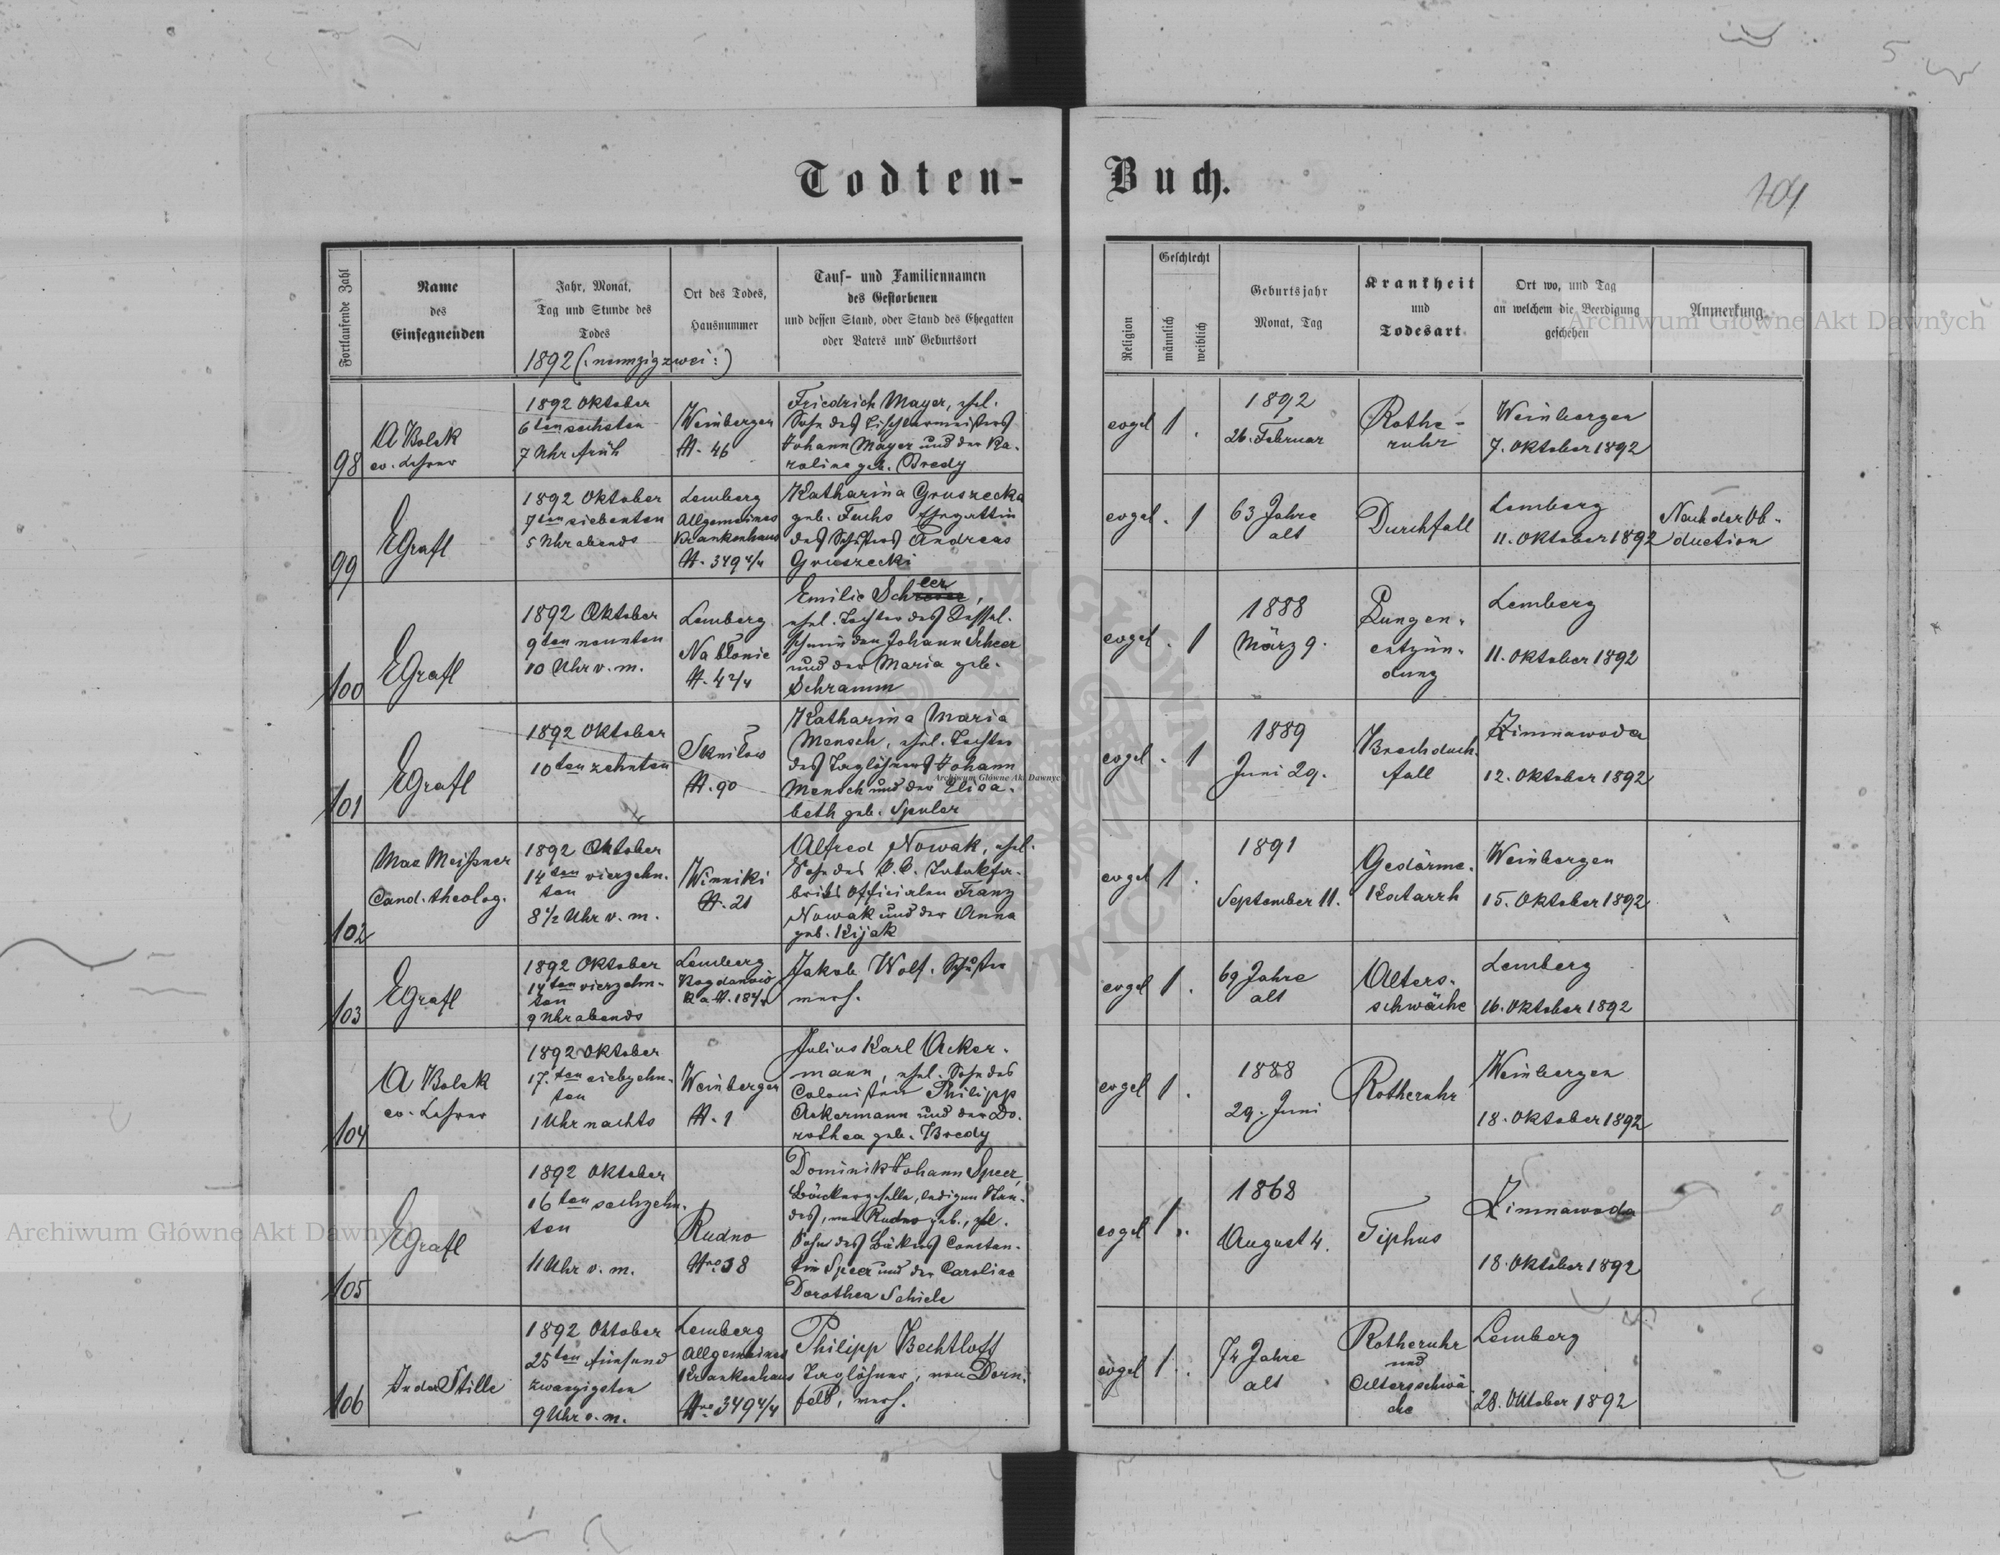 Todten-Buch.
104
Fortlaufende Zahl
Name
des
Einsegnenden
Jahr, Monat,
Tag und Stunde des
Todes
1892 (:neunzigzwei:)
Ort des Todes,
Hausnummer
Tauf- und Familiennamen
des Gestorbenen
und dessen Stand, oder Stand des Ehegatten
oder Vaters und Geburtsort
Religion
Geschlecht
männlich
weiblich
Geburtsjahr
Monat, Tag
Krankheit
und
Todesart
Ort wo, und Tag
an welchem die Beerdigung
geschehen
Anmerkung.
98
A Bolek
ev. Lehrer
1892 Oktober
6ten sechsten
7 Uhr früh
Weinbergen
N. 46
Friedrich Mayer, ehel.
Sohn des Tischlermeisters
Johann Mayer und der Ka-
rolina geb. Bredy
evgel
1
.
1892
26. Februar
Rothe-
ruhr
Weinbergen
7. Oktober 1892
99
EGrafl
1892 Oktober
7ten siebenten
5 Uhr abends
Lemberg
Allgemeines
Krankenhaus
N. 349 4/4
Katharina Gruszecka
geb. Fuchs Ehegattin
des Schusters Andreas
Gruszecki
evgel
.
1
63 Jahre
alt
Durchfall
Lemberg
11. Oktober 1892
Nach der Ob-
duction
100
EGrafl
1892 Oktober
9ten neunten
10 Uhr v. m.
Lemberg
Na błonie
N. 4 2/4
Emilie Scheer,
ehel. Tochter des Kessel-
schmieden Johann Scheer
und der Maria geb.
Schramm
evgel
.
1
1888
März 9.
Lungen-
entzün-
dung
Lemberg
11. Oktober 1892
101
EGrafl
1892 Oktober
10ten zehnten
Skniłow
N. 90
Katharina Maria
Mensch, ehel. Tochter
des Taglöhners Johann
Mensch und der Elisa-
beth geb. Spuler
evgel
.
1
1889
Juni 29.
Brechdurch-
fall
Zimnawoda
12. Oktober 1892
102
Max Meißner
Cand. theolog.
1892 Oktober
14ten vierzehn-
ten
8 1/2 Uhr v. m.
Winniki
N. 21
Alfred Nowak, ehel.
Sohn des k.k. Tabakfa-
briks Officialen Franz
Nowak und der Anna
geb. Kijak
evgel
1
.
1891
September 11.
Gedärme-
Katarrh
Weinbergen
15. Oktober 1892
103
EGrafl
1892 Oktober
14ten vierzehn-
ten
9 Uhr abends
Lemberg
Bogdanow-
ka N. 18 4/4
Jakob Wolf. Schuster
verh.
evgel
1
.
69 Jahre
alt
Alters-
schwäche
Lemberg
16. Oktober 1892
104
A Bolek
ev. Lehrer
1892 Oktober
17.ten siebzehn-
ten
1 Uhr nachts
Weinbergen
N. 1
Julius Karl Acker-
mann, ehel. Sohn des
Colonisten Philipp
Ackermann und der Do-
rothea geb. Bredy
evgel
1
.
1888
29. Juni
Rotheruhr
Weinbergen
18. Oktober 1892
105
EGrafl
1892 Oktober
16ten sechzehn-
ten
11 Uhr v. m.
Rudno
Nro 38
Dominik Johann Speer,
Bäckergeselle, ledigen Stan-
des, von Rudno geb., ehel.
Sohn des Bäckers Constan-
tin Speer und der Caroline
Dorothea Schiele
evgel
1
.
1868
August 4.
Tiphus
Zimnawoda
18. Oktober 1892
106
In der Stille
1892 Oktober
25ten fünfund
zwanzigsten
9 Uhr v. m.
Lemberg
Allgemeines
Krankenhaus
Nro 349 4/4
Philipp Bechtloff
Taglöhner, von Dorn-
feld, verh.
evgel
1
.
74 Jahre
alt
Rotheruhr
und
Altersschwä-
che
Lemberg
28. Oktober 1892
Archiwum Główne Akt Dawnych
Archiwum Główne Akt Dawnych
Archiwum Główne Akt Dawnych